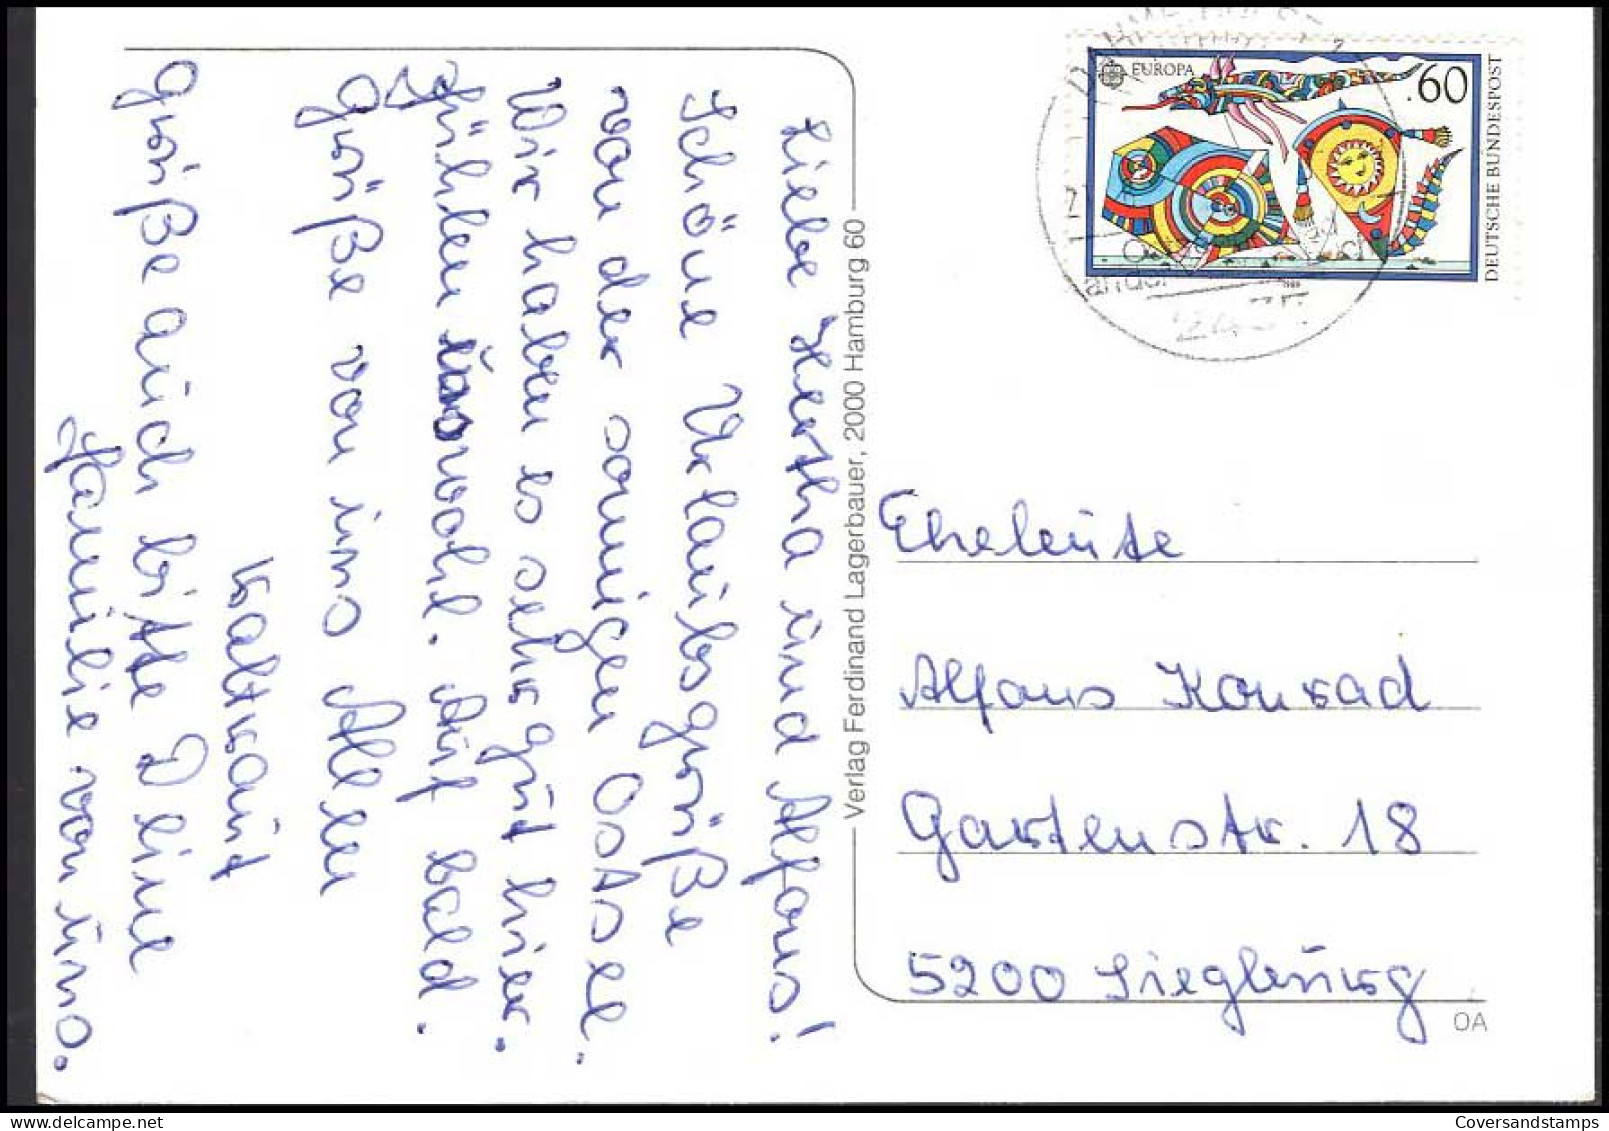 Liebe Hertha und Alfons!
Schöne Urlaubsgrüße
von der sonnigen Ostsee.
Wir haben es sehr gut hier.
fühlen uns wohl. Auf bald.
Grüße von uns Allen
Waltraut
Grüße auch bitte Deine
Familie von uns.
Verlag Ferdinand Lagerbauer, 2000 Hamburg 60
EUROPA
60
DEUTSCHE BUNDESPOST
Eheleute
Alfons Konrad
Gartenstr. 18
5200 Siegburg
OA
Coversandstamps